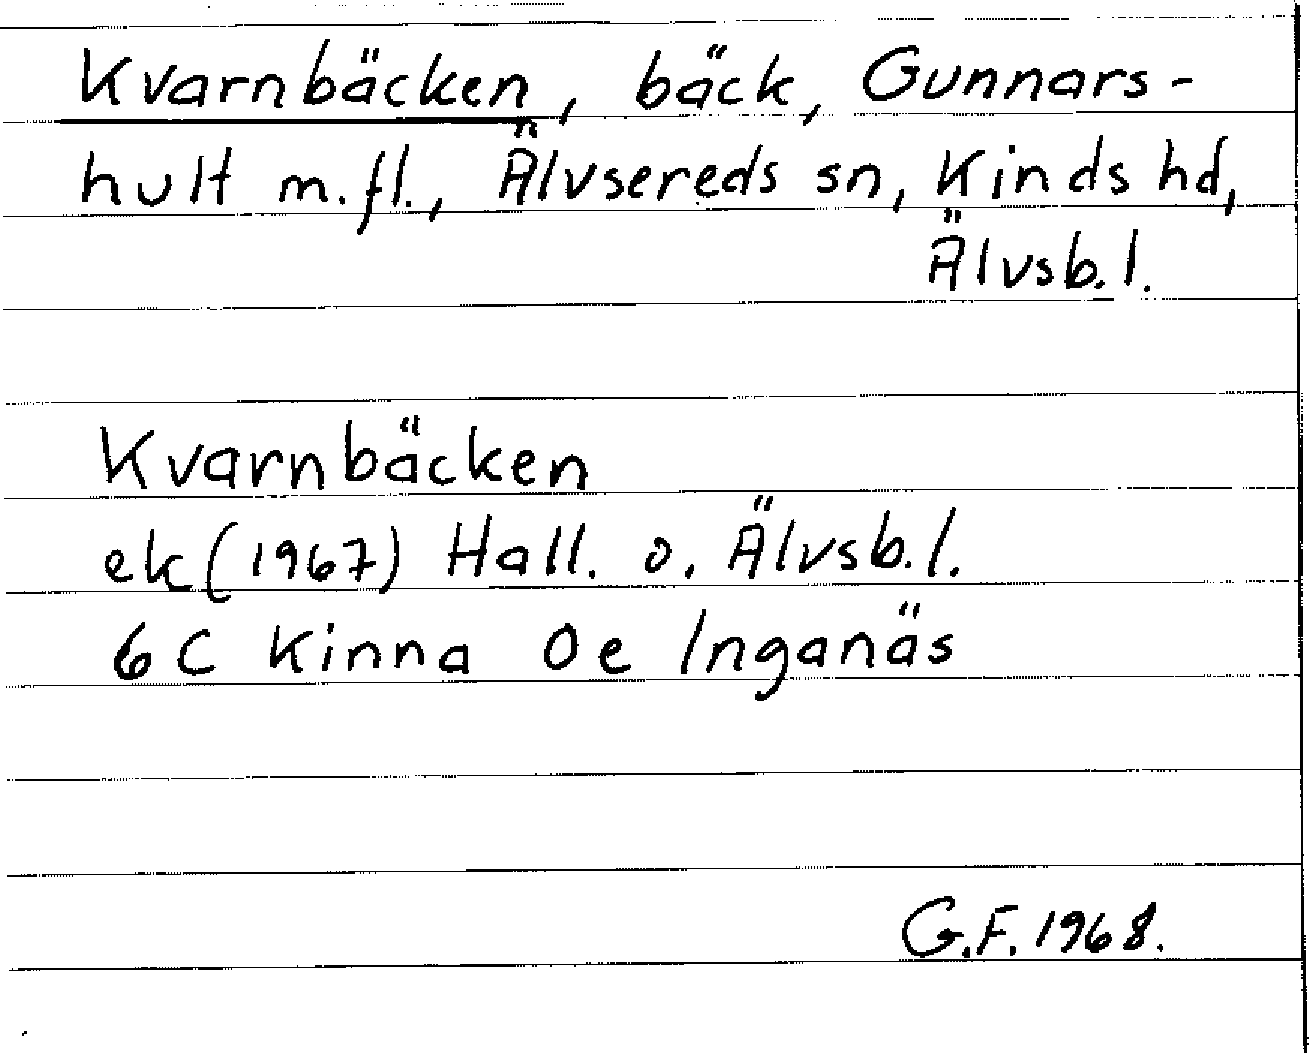 Kvarnbäcken, bäck, Gunnars-
hult m.fl., Älvsereds sn, Kinds hd,
Älvsb.l.
Kvarnbäcken
ek (1967) Hall. o. Älvsb.l.
6C Kinna Oe Inganäs
G.F. 1968.